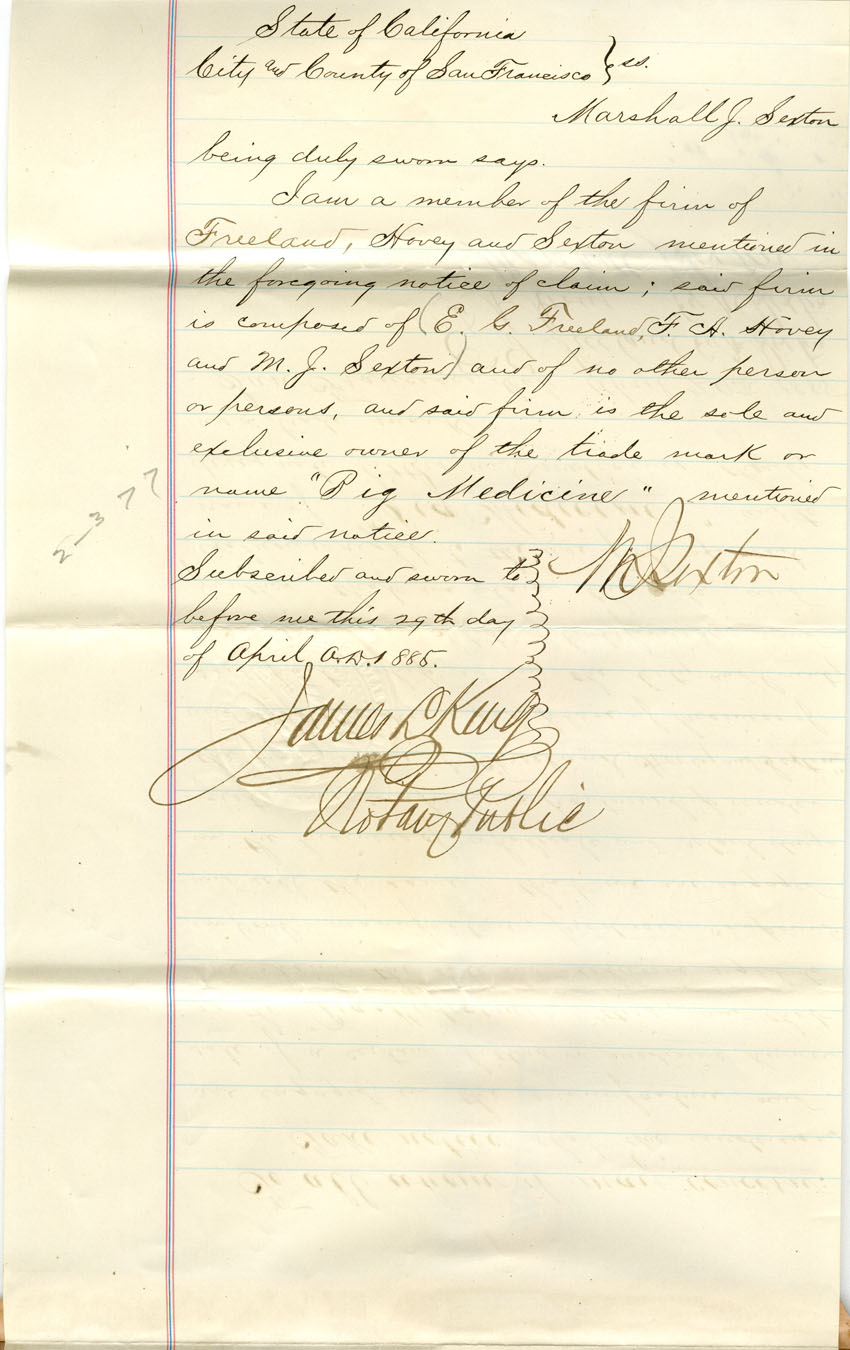 State of California
City and County of San Francisco } ss.
Marshall J. Sexton
being duly sworn says.
I am a member of the firm of
Freeland, Hovey and Sexton mentioned in
the foregoing notice of claim; said firm
is composed of (E. G. Freeland, F. A. Hovey
and M. J. Sexton) and of no other person
or persons, and said firm is the sole and
exclusive owner of the trade mark or
name "Pig Medicine" mentioned
in said notice.
M J Sexton
Subscribed and sworn to
before me this 29th day
of April A.D. 1885.
James L King
Notary Public
2-377